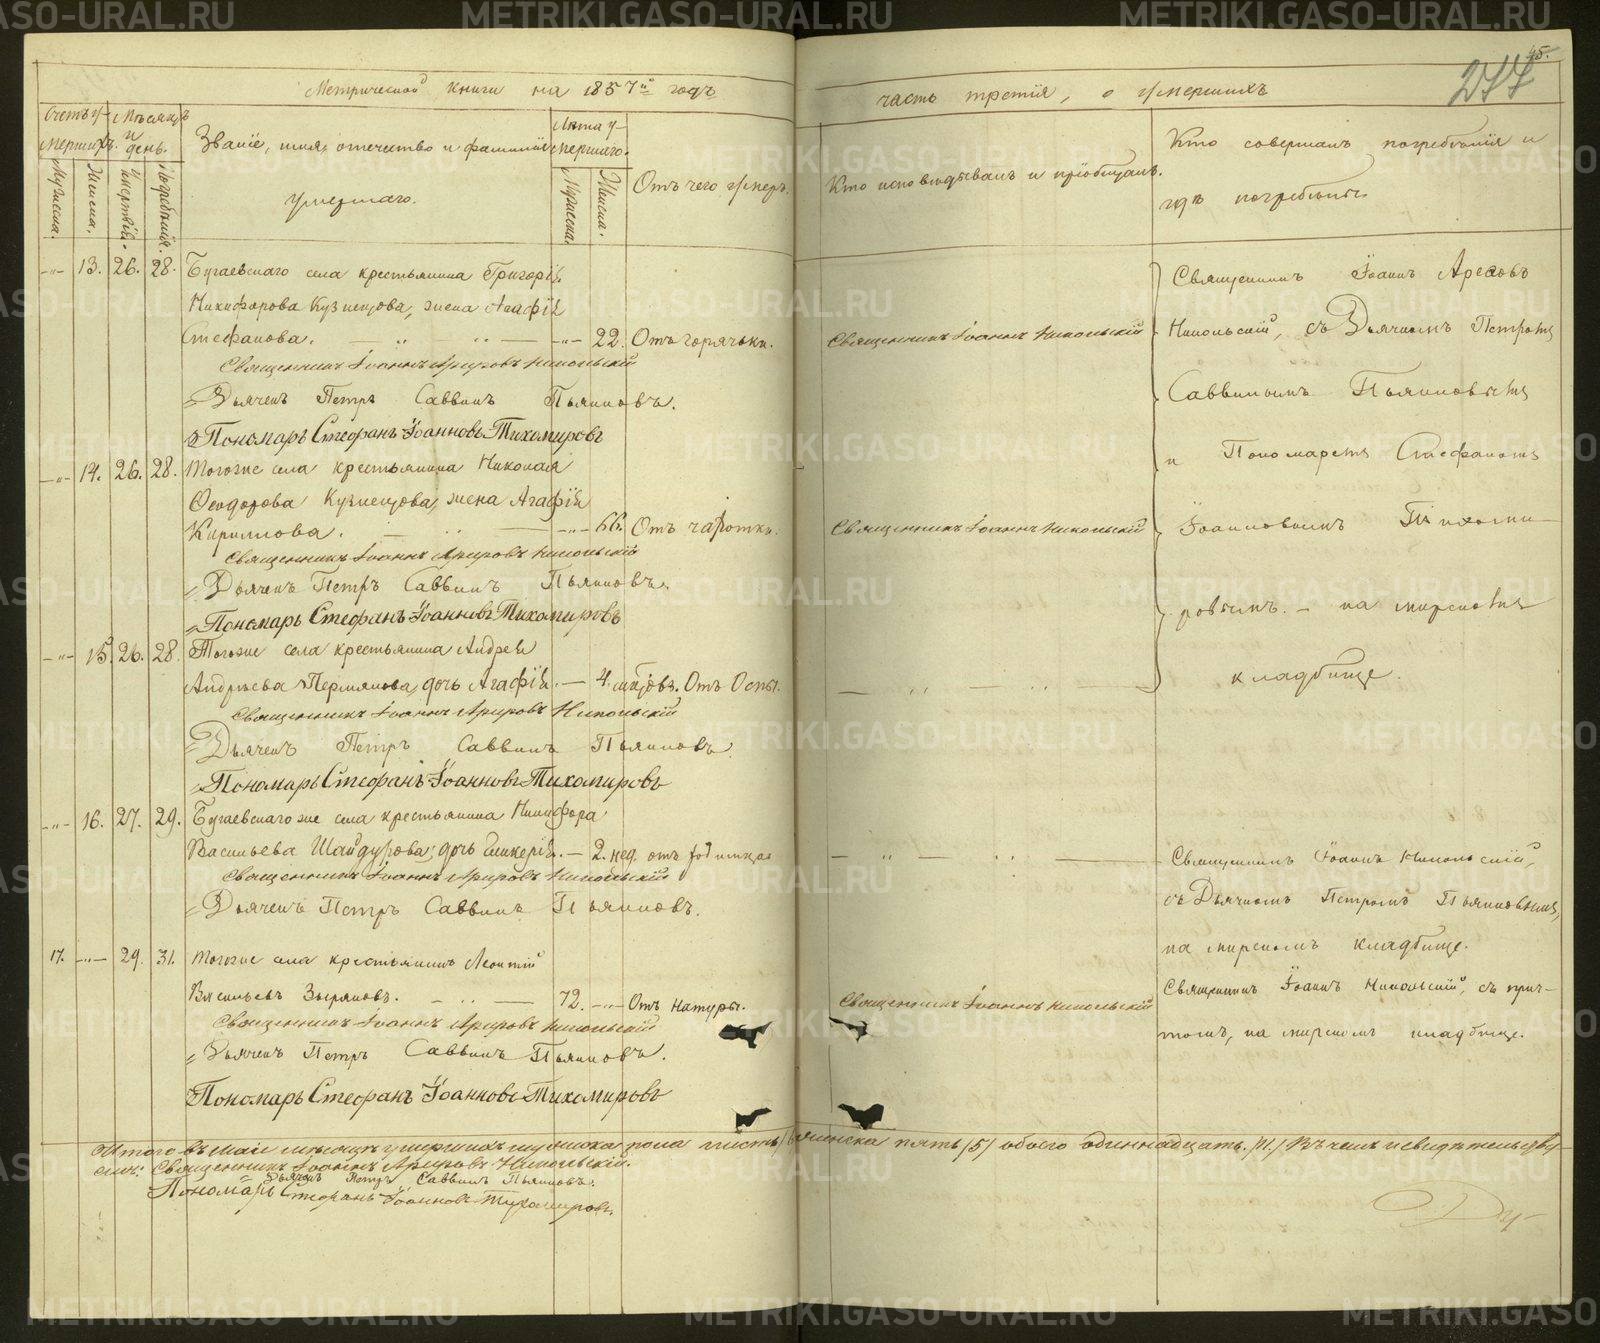 METRIKI.GASO-URAL.RU
45.
277
Метрической книги на 1857й годъ
часть третія, о умершихъ
Счетъ умершихъ.
Мужеска.
Женска.
Мѣсяцъ и день.
Смерти.
Погребенія.
Званіе, имя, отечество и фамилія
умершаго.
Лѣта умершаго.
Мужеска.
Женска.
Отъ чего умеръ.
Кто исповѣдывалъ и пріобщалъ.
Кто совершалъ погребеніе и
гдѣ погребены
-"- 13. 26. 28. Бугаевскаго села крестьянина Григорія
Никифорова Кузнецова, жена Агафія
Стефанова. -"- 22. Отъ горячьки.
Священникъ Іоаннъ Никольскій
Священникъ Іоаннъ Никольскій
Дьячекъ Петръ Саввинъ Пьянковъ.
Пономарь Стефанъ Іоанновъ Тихомировъ
-"- 14. 26. 28. Тогоже села крестьянина Николая
Ѳеодорова Кузнецова, жена Агафія
Кирилова. -"- 66. Отъ чахотки.
Священникъ Іоаннъ Никольскій
Священникъ Іоаннъ Никольскій
Дьячекъ Петръ Саввинъ Пьянковъ.
Пономарь Стефанъ Іоанновъ Тихомировъ
-"- 15. 26. 28. Тогоже села крестьянина Андрея
Андреева Пермякова, дочь Агафія. — 4. Отъ Оспы.
Священникъ Іоаннъ Никольскій
Дьячекъ Петръ Саввинъ Пьянковъ
Пономарь Стефанъ Іоанновъ Тихомировъ
Священникъ Іоаннъ
Никольскій, съ Дьячкомъ Петромъ
Саввинымъ Пьянковымъ
и Пономаремъ Стефаномъ
Іоанновымъ Тихоми-
ровымъ. – на мирскомъ
кладбище.
-"- 16. 27. 29. Бугаевскаго же села крестьянина Никифора
Васильева Шайдурова, дочь Гликерія. — 2. нед. отъ родимца
Священникъ Іоаннъ Никольскій
Дьячекъ Петръ Саввинъ Пьянковъ.
Священникъ Іоаннъ Никольскій,
съ Дьячкомъ Петромъ Пьянковымъ,
на мирскомъ кладбище.
17. -"- 29. 31. Тогоже села крестьянинъ Леонтій
Васильевъ Зыряновъ. 72. -"- Отъ натуры.
Священникъ Іоаннъ Никольскій
Священникъ Іоаннъ Никольскій, съ прич-
томъ, на мирскомъ кладбище.
Священникъ Іоаннъ Никольскій
Дьячекъ Петръ Саввинъ Пьянковъ.
Пономарь Стефанъ Іоанновъ Тихомировъ
Итого въ Маіе мѣсяцѣ умершихъ мужеска пола шесть, женска пять /5/ обоего одиннадцать. /11./ Въ чемъ и свидѣтельству-
емъ: Священникъ Іоаннъ Никольскій.
Дьячекъ Петръ Саввинъ Пьянковъ.
Пономарь Стефанъ Іоанновъ Тихомировъ.